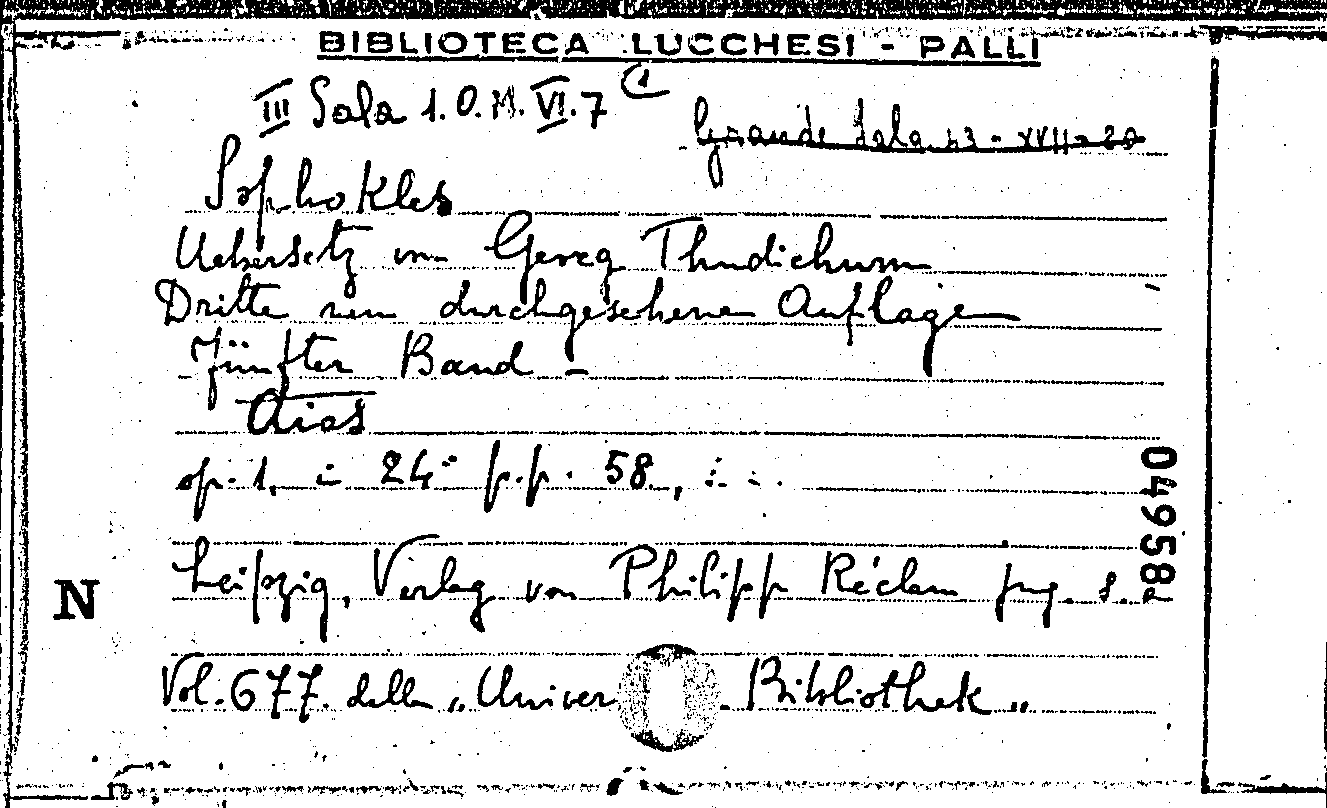 BIBLIOTECA LUCCHESI - PALLI
III Sala 1.O.M.VI.7 (1
Grande Sala 23 - XVII - 20
Sophokles
Uebersetz von Georg Thudichum
Dritte neu durchgesehene Auflage
Fünfter Band -
Aias
op. 1, in 24° p.p. 58,
Leipzig, Verlag von Philipp Réclam jug. s. a
Vol. 677. della „Univer Bibliothek„
04958
N